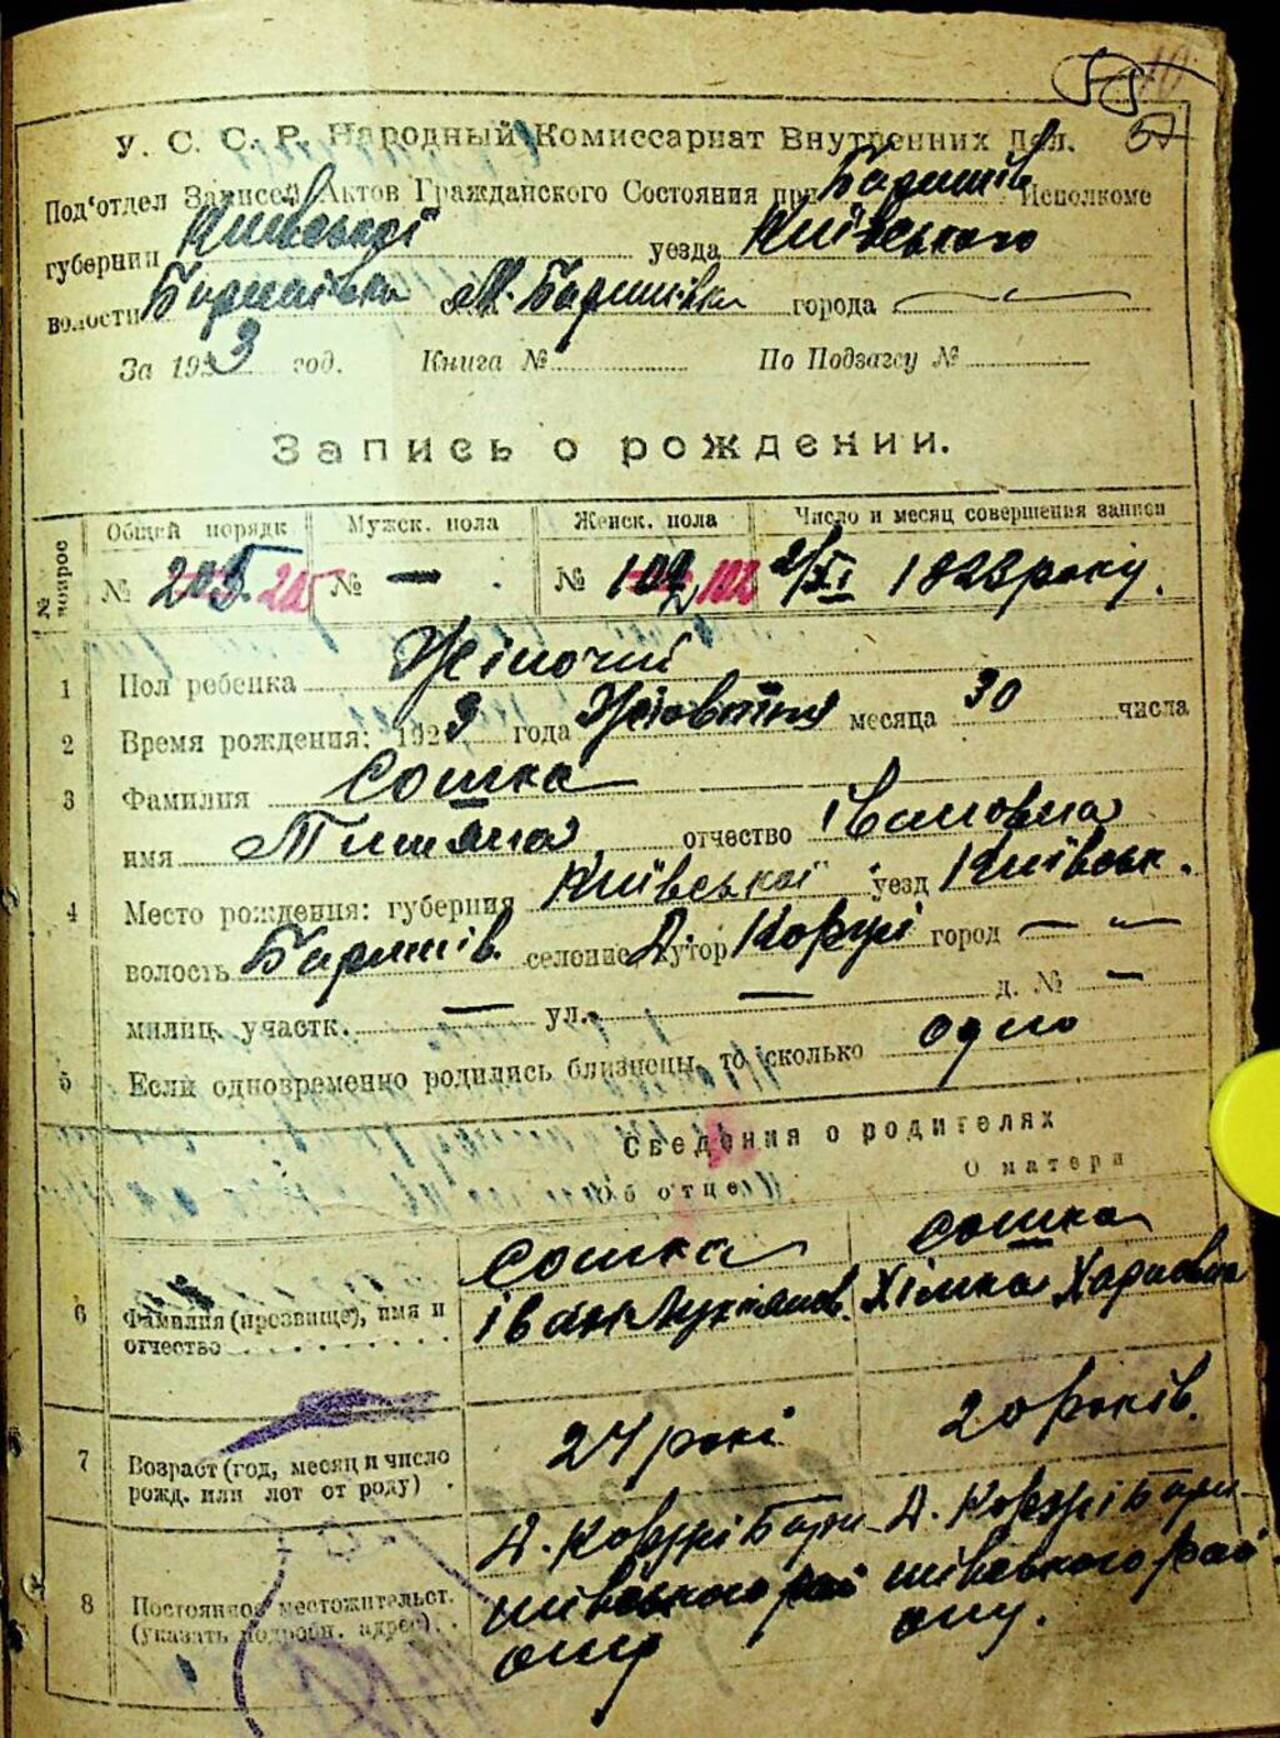 57
У. С. С. Р. Народный Комиссариат Внутренних Дел.
Под'отдел Записей Актов Гражданского Состояния при Баришів Исполкоме
губернии Київської уезда Київського
волости Баришівка м. Баришівка города —
За 1923 год. Книга № По Подзагсу №
Запись о рождении.
№ вопрос Общей порядк Мужск. пола Женск. пола Число и месяц совершения записи
№ 205. 205 № — № 102 102 2/XI 1823 року.
1 Пол ребенка Жіночий
2 Время рождения: 1923 года Жовтня месяца 30 числа
3 Фамилия Сошка
имя Титяна отчество Івановна
4 Место рождения: губерния Київської уезд Київськ.
волость Баришів. селение, хутор Коржі город — „ —
милиц. участк. — ул. — д. № —
5 Если одновременно родились близнецы, то сколько одно
Сведения о родителях
Об отце О матери
Сошка Сошка
6 Фамилия (прозвище), имя и отчество Іван Лукіянов. Хімка Харповна
7 Возраст (год, месяц и число рожд. или лет от роду) 24 рокі 20 років.
8 Постоянное местожительст. (указать подробн. адрес)
Д. Коржі Бари- Д. Коржі Бари-
шівського рай шівського рай
ону ону.